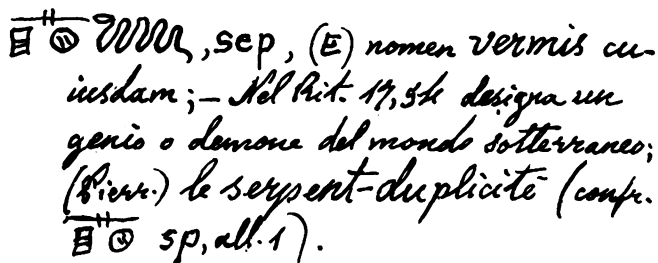 , sep, (E) nomen vermis cu-
iusdam; — Nel Rit. 17, 54 designa un
genio o demone del mondo sotterraneo;
(Pierr.) le serpent-duplicité (confr.
sp, all. 1).